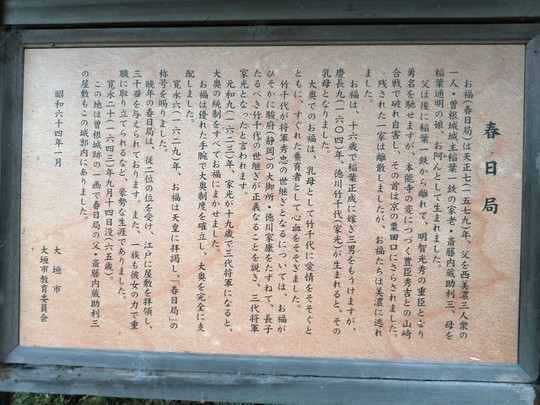 春日局
お福(春日局)は天正七(一五七九)年、父を西美濃三人衆の
一人・曽根城城主稲葉一鉄の家老・斎藤内蔵助利三、母を
稲葉通明の娘、お阿んとして生まれました。
父は後に稲葉一鉄から離れて、明智光秀の重臣となり
勇名を馳せますが、本能寺の変につづく豊臣秀吉との山崎
合戦で破れ自害し、その首は京の粟田口にさらされました。
残された一家は離散しましたが、お福たちは美濃に逃れ
ました。
お福は、十六歳で稲葉正成に嫁ぎ三男をもうけますが、
慶長九(一六〇四)年、徳川竹千代(家光)が生まれると、その
乳母となりました。
大奥でのお福は、乳母として竹千代に愛情をそそぐと
ともに、すぐれた養育者として心血をそそぎました。
竹千代が将軍秀忠の世継ぎとなるについては、お福が
ひそかに駿府(静岡)の大御所・徳川家康をたずねて、長子
たるべき竹千代の世継ぎが正義なることを説き、三代将軍
家光となったと言われます。
元和九(一六二三)年、家光が十九歳で三代将軍になると、
大奥の統制をすべてお福にまかせました。
お福は優れた手腕で大奥制度を確立し、大奥を完全に支
配しました。
寛永六(一六二九)年、お福は天皇に拝謁し、「春日局」の
称号を賜りました。
晩年の春日局は、従二位の位を受け、江戸に屋敷を拝領し、
三千石を与えられております。また、一族も彼女の力で重
職に取り立てられるなど、豪勢な生涯でありました。
寛永二十(一六四三)年九月十四日没(六五歳)
この地は曽根城跡の一画で春日局の父・斎藤内蔵助利三
の屋敷もこの城郭内にありました。
昭和六十四年一月
大垣市
大垣市教育委員会